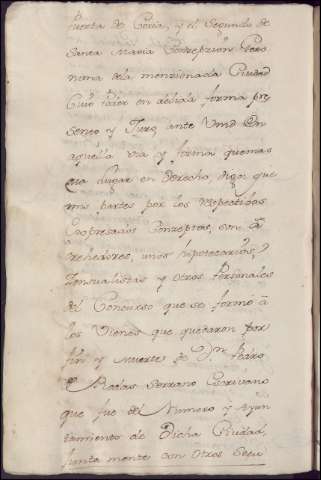 Puerta de Coria, y el Segundo de
Santa Maria Concepcion Pero
nima de la menzionada Ciudad
Cuio Poder en debida forma pre
sento y Juro ante Vmd en
aquella via y forma que mas
aia lugar en derecho digo que
mis partes por los respectibos
Expresados Conzeptos, son a
crehedores, unos hipotecarios,
Zensualistas y otros Personales
del Concurso que se formo â
los Vienes que quedaron por
fin y muerte de Dn Pedro
Matias Serrano Escrivano
que fue del Numero y Ayun
tamiento de Dicha Ciudad,
Junta mente con otros Sequ